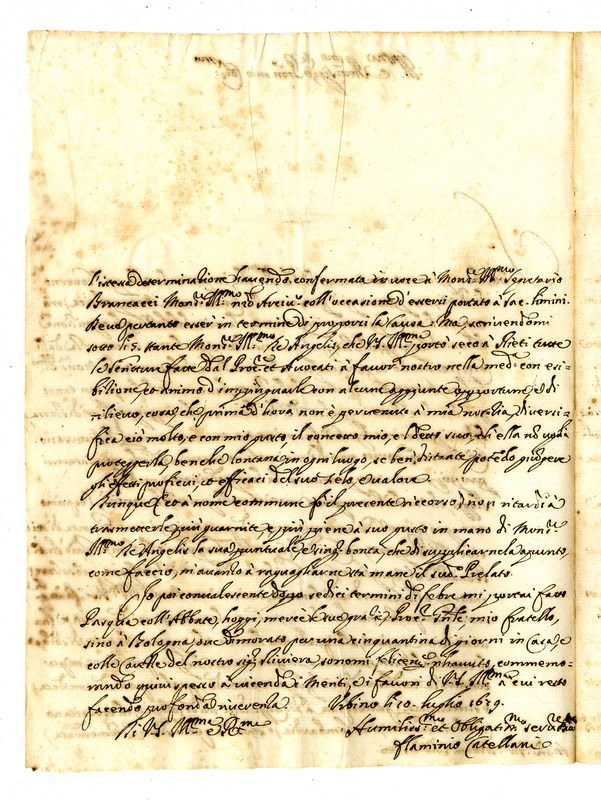 l'istessa determinatione havendo confermata in voce à Mons.r Ill.mo Segretario
Brancacci Mons.r Ill.mo n.ro Arciv.o coll'occasione d'essersi portato à Sac. Limini.
Deve pertanto esser in termine di proporsi la causa. Ma scrivendomi
sotto li 5. stante Mons.r Ill.mo de Angelis, che V.S. Ill.ma portò seco à Rieti tutte
le scritture fatte dal Proc.re et Avocati à favor nostro nella med.a con esi-
bitione, et animo d'impinguarle con alcune aggiunte opportune, e di
rilievo, cosa che prima d'hora non è pervenuta à mia notitia, diversi-
fica ciò molto, e con mio gusto, il concetto mio, e 'l detto suo, ch'ella nò voglia
proteggerla, benche lontana in ogni luogo, se ben distante potêdo giungere
gli effetti proficui, et efficaci del suo zelo, e valore.
Dunque (et à nome commune fò il presente ricorso) non ritardi à
trasmetterle più guarnite, e più piene à suo gusto in mano di Mons.r
Ill.mo de Angelis la sua puntuale, e sing.r bontà, che di supplicarnela apunto,
come faccio, m'avanzò à ragguagliarne stà mane il sud.o Prelato.
Io poi convalescente doppo sedici termini di febre mi portai fatto
Pasqua coll'Abbate, hoggi, mercè le sue gratie Proc.re mio fratello,
sino à Bologna, ove dimorato per una cinquantina di giorni in Casa, e
colle Carette del nostro Sig.r Riviera, sonomi felicem.te rihavuto, commemo-
rando quivi spesso à vicenda i meriti, e i favori di V.S. Ill.ma à cui resto
facendo profonda riverenza. Urbino li 10. luglio 1679.
Di V.S. Ill.ma e R.ma
Humiliss.mo et Obligatiss.mo Serv.re
Flaminio Catellani